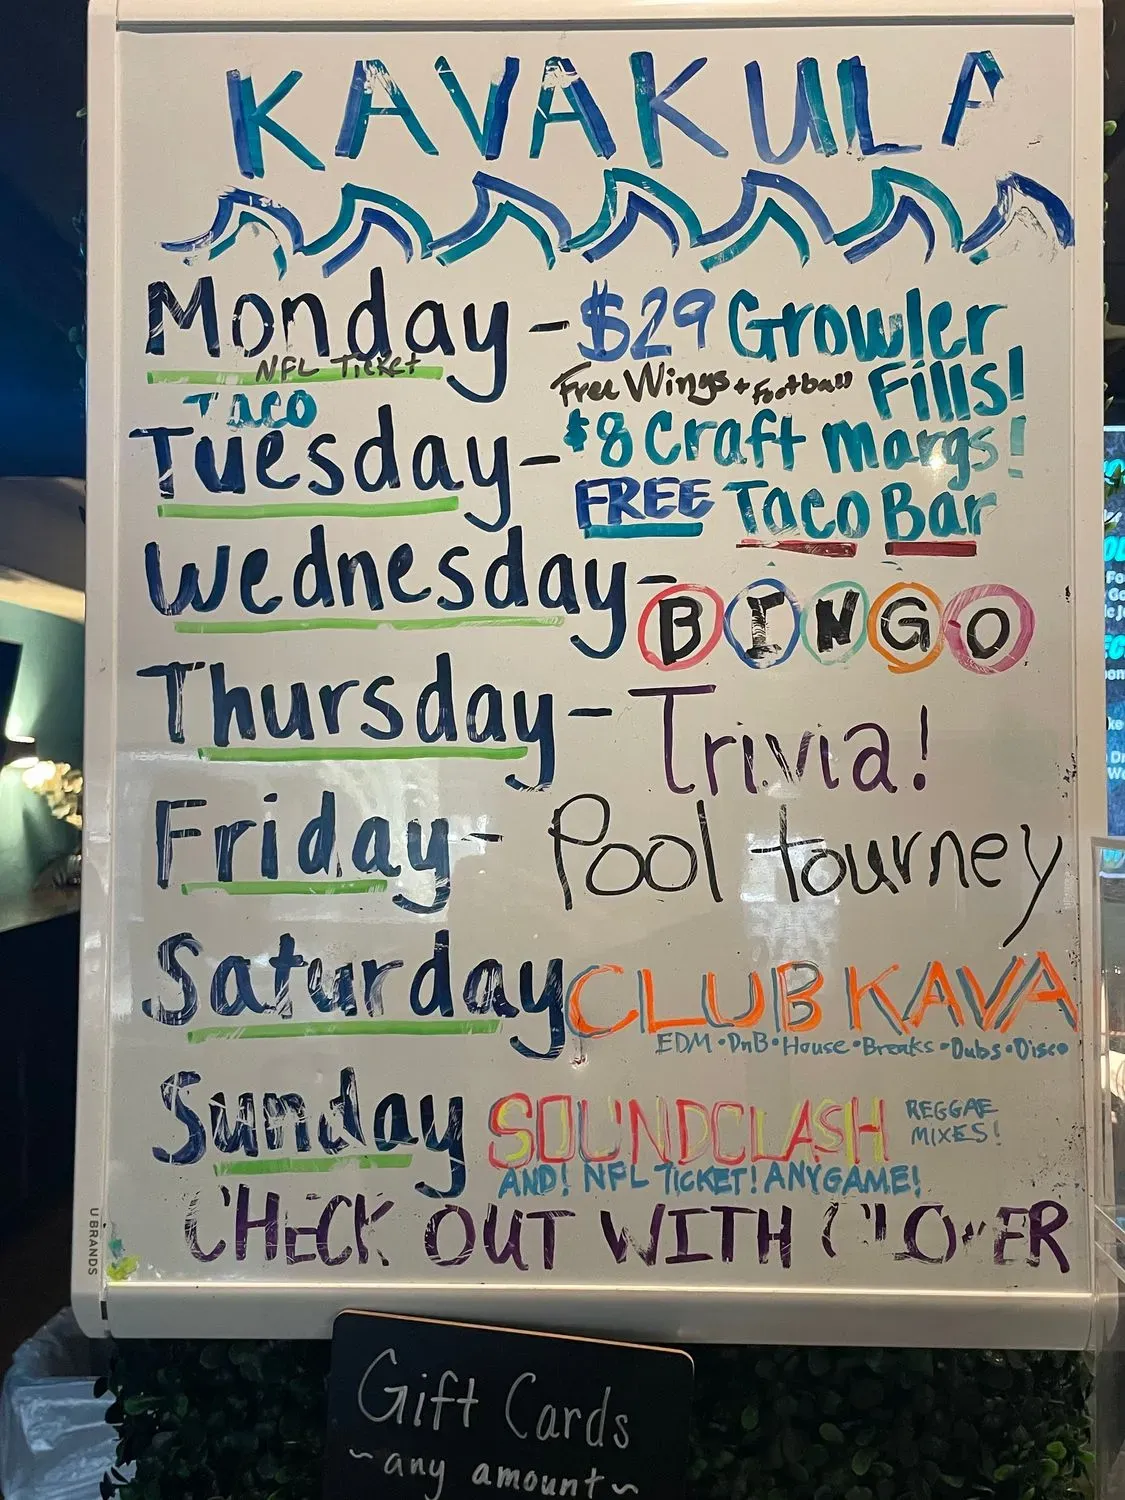 KAVAKULA
Monday - $29 Growler
NFL Ticket Free Wings + Football Fills!
Taco
Tuesday - $8 Craft Margs!
FREE Taco Bar
Wednesday - BINGO
Thursday - Trivia!
Friday - Pool tourney
Saturday CLUB KAVA
EDM • DnB • House • Breaks • Dubs • Disco
Sunday SOUNDCLASH REGGAE
MIXES!
AND! NFL TICKET! ANYGAME!
CHECK OUT WITH CLOVER
U BRANDS
Gift Cards
~any amount~